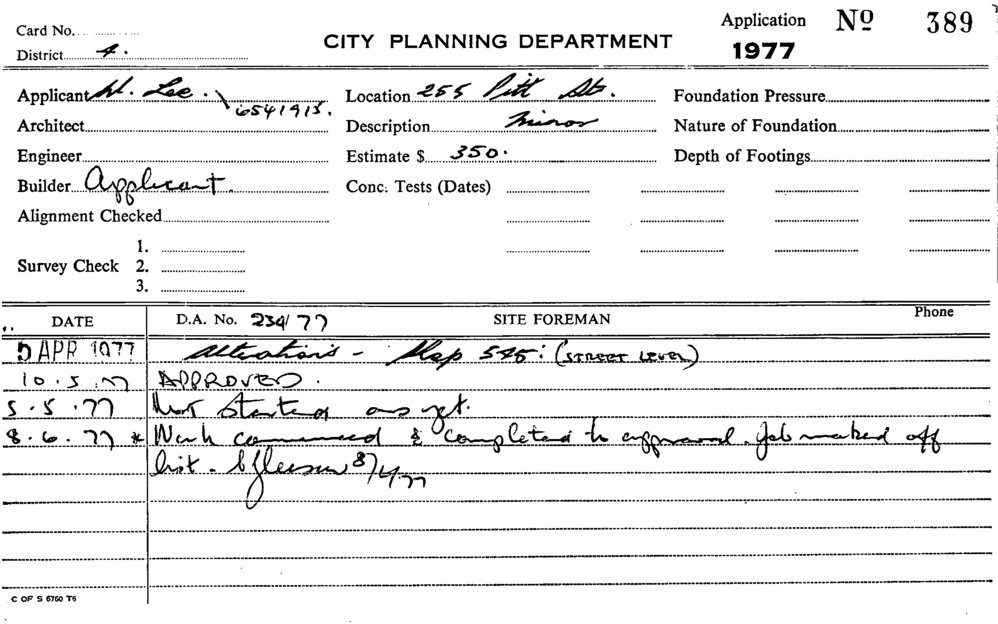 Card No.
Application Nº 389
District 4.
CITY PLANNING DEPARTMENT
1977
Applicant W. Lee. 6541915.
Location 255 Pitt St.
Foundation Pressure
Architect
Description Minor
Nature of Foundation
Engineer
Estimate $ 350.
Depth of Footings
Builder Applicant.
Conc. Tests (Dates)
Alignment Checked
1.
Survey Check 2.
3.
DATE D.A. No. 234/77 SITE FOREMAN Phone
5 APR 1977 Alterations - Shop 545: (STREET LEVEL)
10.5.77 APPROVED.
5.5.77 Not Started as yet.
8.6.77 * Work commenced & completed to approval. Job marked off
list. 8/ /77
C OF S 6760 T6